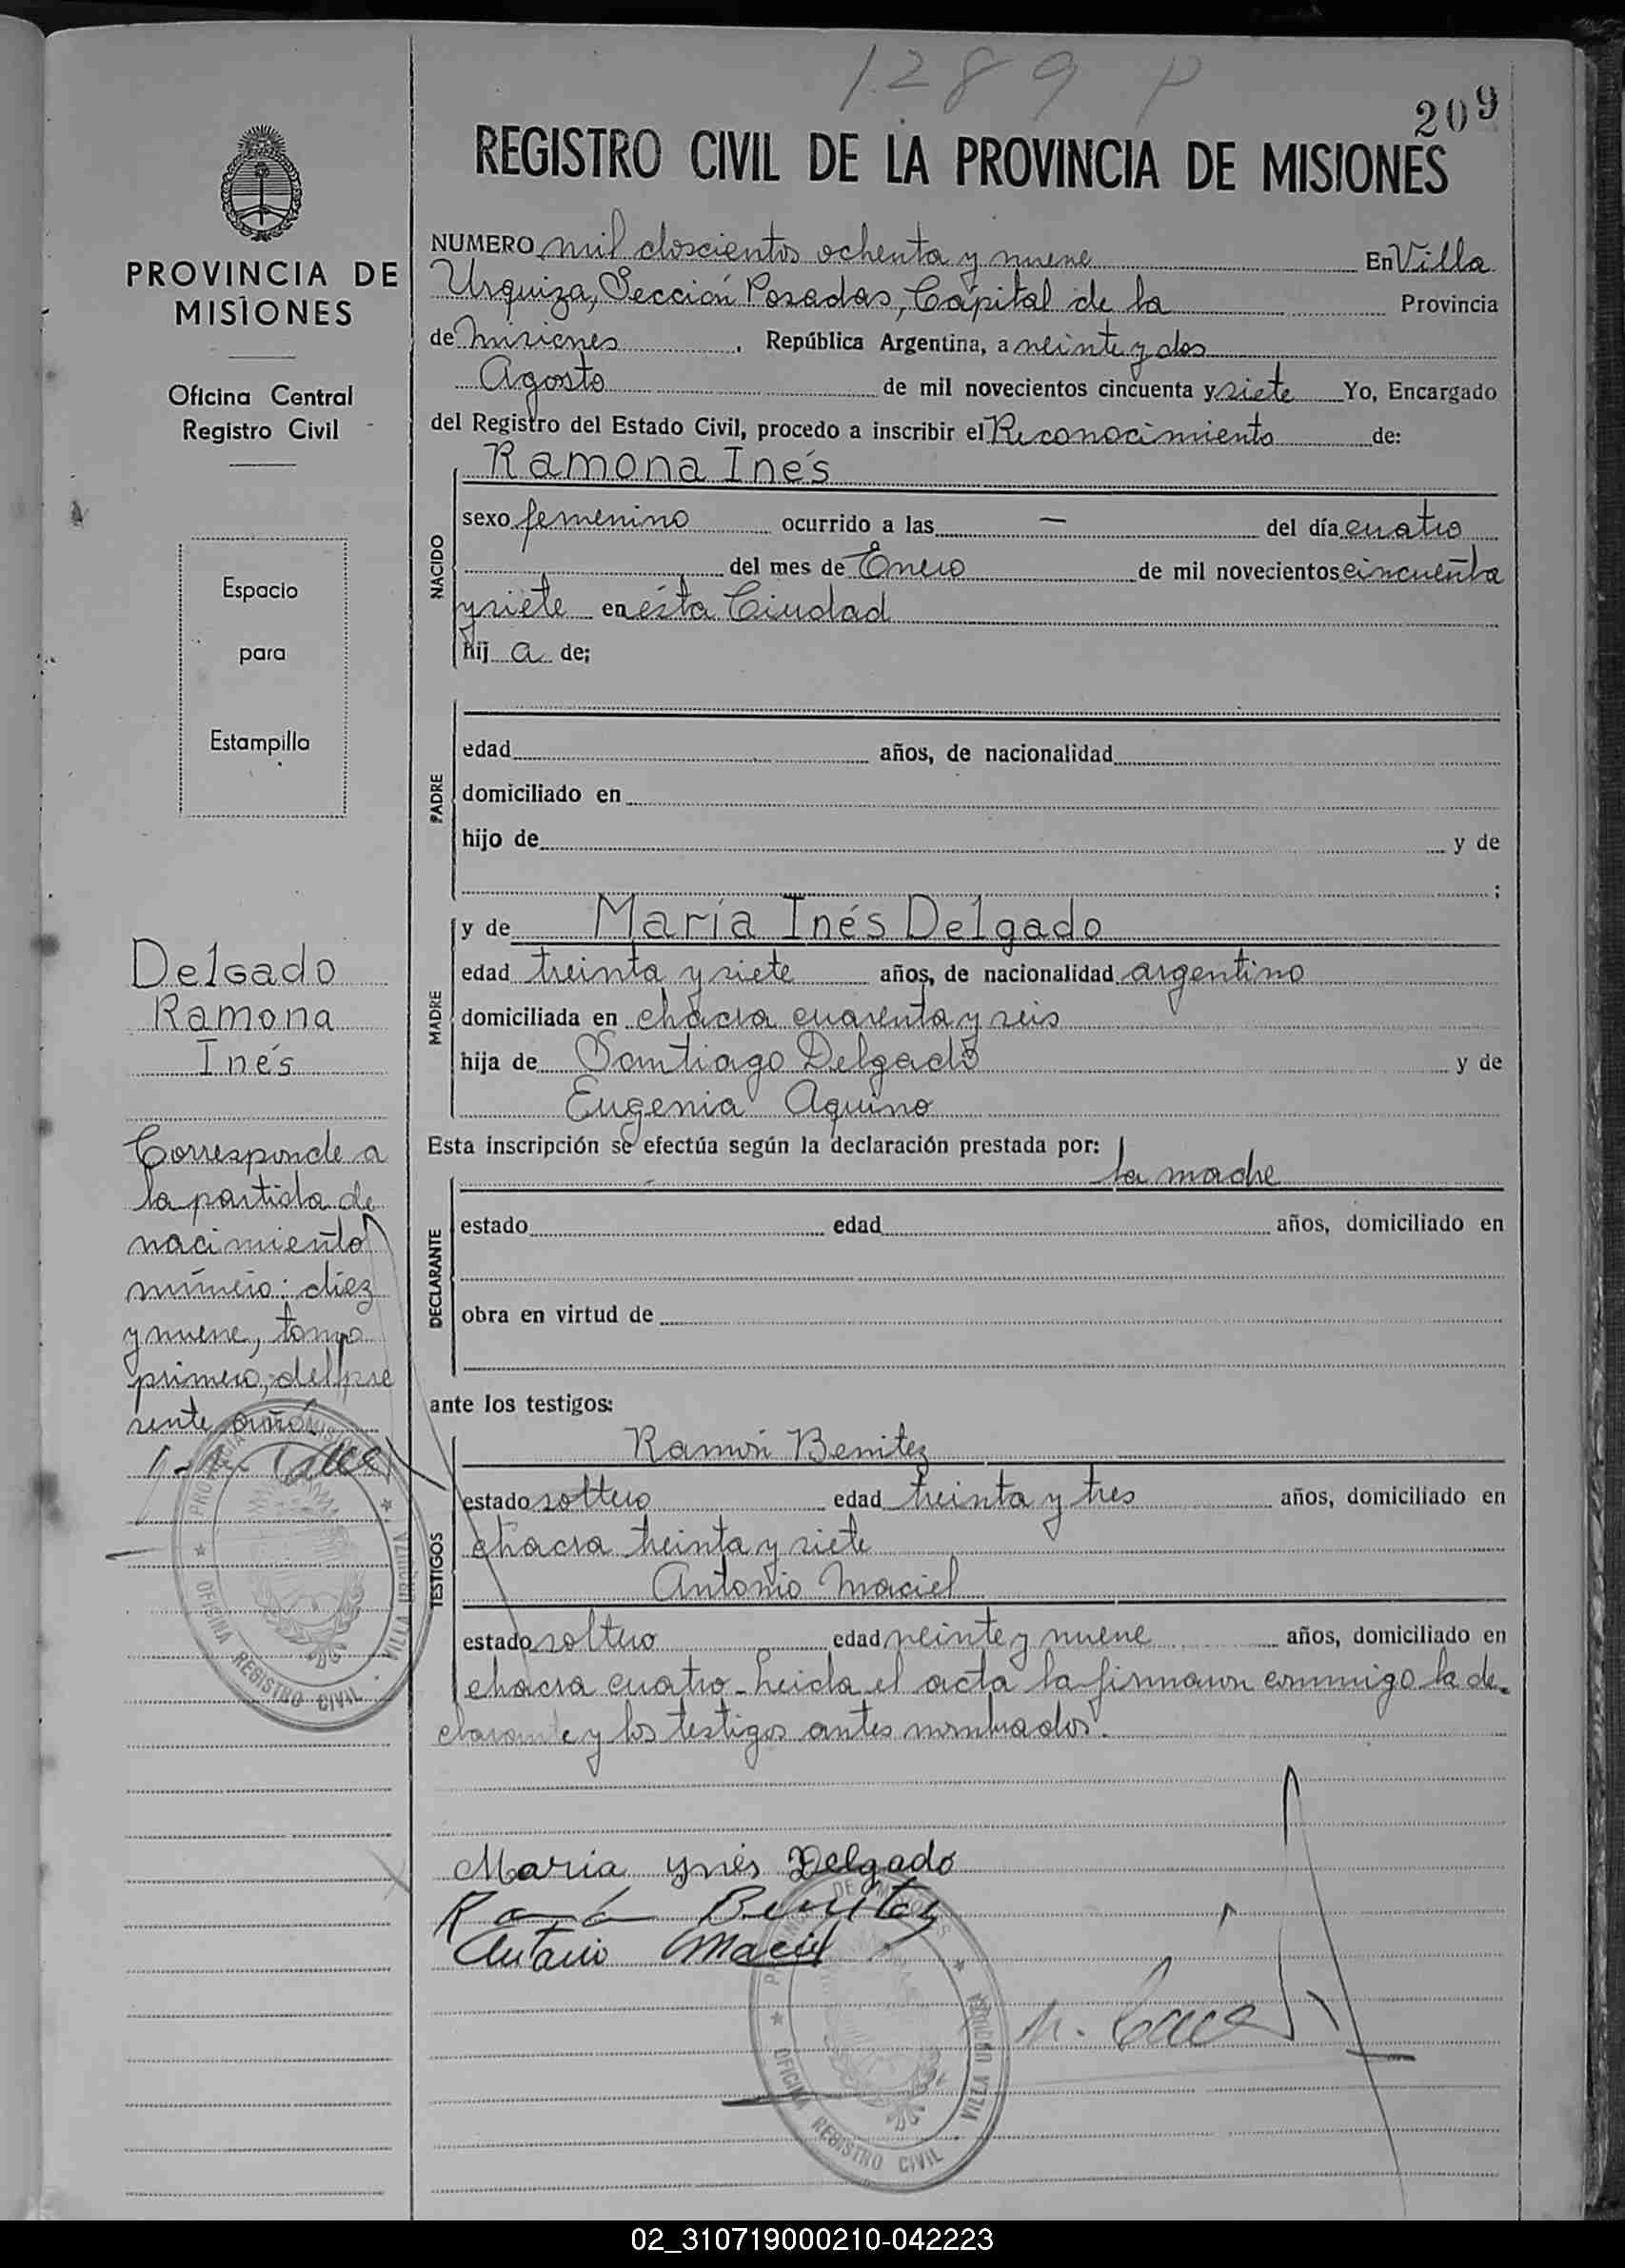 1289 P
209
REGISTRO CIVIL DE LA PROVINCIA DE MISIONES
PROVINCIA DE
MISIONES
Oficina Central
Registro Civil
Espacio
para
Estampilla
NUMERO mil doscientos ochenta y nueve En Villa
Urquiza, Sección Posadas, Capital de la Provincia
de Misiones, República Argentina, a veinte y dos
Agosto de mil novecientos cincuenta y siete Yo, Encargado
del Registro del Estado Civil, procedo a inscribir el Reconocimiento de:
Ramona Inés
NACIDO
sexo femenino ocurrido a las — del día cuatro
del mes de Enero de mil novecientos cincuenta
y siete en ésta Ciudad
hij a de;
PADRE
edad años, de nacionalidad
domiciliado en
hijo de y de
;
MADRE
y de María Inés Delgado
edad treinta y siete años, de nacionalidad argentino
domiciliada en chacra cuarenta y seis
hija de Santiago Delgado y de
Eugenia Aquino
Esta inscripción se efectúa según la declaración prestada por:
la madre
DECLARANTE
estado edad años, domiciliado en
obra en virtud de
ante los testigos:
TESTIGOS
Ramón Benitez
estado soltero edad treinta y tres años, domiciliado en
chacra treinta y siete
Antonio Maciel
estado soltero edad veinte y nueve años, domiciliado en
chacra cuatro - Leida el acta la firmaron conmigo la de-
clarante y los testigos antes nombrados.
Maria ynés Delgado
Ramón Benitez
Antonio Maciel
Delgado
Ramona
Inés
Corresponde a
la partida de
nacimiento
número: diez
y nueve, tomo
primero, del pre
sente año.
PROVINCIA DE MISIONES
OFICINA REGISTRO CIVIL · VILLA URQUIZA
PROVINCIA DE MISIONES
OFICINA REGISTRO CIVIL · VILLA URQUIZA
02_310719000210-042223